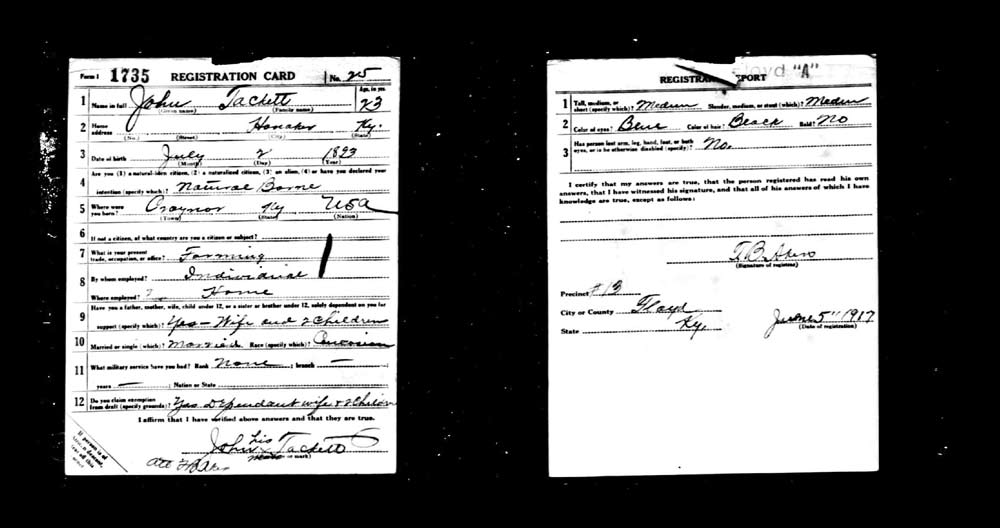 Form 1 1735 REGISTRATION CARD No. 25
1 Name in full John Tackett Age, in yrs. 23
(Given name) (Family name)
2 Home address Honaker Ky.
(No.) (Street) (City) (State)
3 Date of birth July 2 1893
(Month) (Day) (Year)
Are you (1) a natural-born citizen, (2) a naturalized citizen, (3) an alien, (4) or have you declared your
4 intention (specify which)? Natural Borne
5 Where were you born? Craynor Ky USa
(Town) (State) (Nation)
6 If not a citizen, of what country are you a citizen or subject?
7 What is your present trade, occupation, or office? Farming
8 By whom employed? Individual
Where employed? Home
9 Have you a father, mother, wife, child under 12, or a sister or brother under 12, solely dependent on you for
support (specify which)? Yes – Wife and 2 Children
10 Married or single (which)? Married. Race (specify which)? Caucasian
11 What military service have you had? Rank None ; branch —
years — ; Nation or State
12 Do you claim exemption from draft (specify grounds)? Yes Dependant wife & 2 Children
I affirm that I have verified above answers and that they are true.
John his x Tackett
(Signature or mark)
If person is of African descent, tear off this corner
Att T B Akers
Floyd "A"
REGISTRAR REPORT
1 Tall, medium, or short (specify which)? Medium Slender, medium, or stout (which)? Medium
2 Color of eyes? Blue Color of hair? Black Bald? No
3 Has person lost arm, leg, hand, foot, or both eyes, or is he otherwise disabled (specify)? No.
I certify that my answers are true, that the person registered has read his own
answers, that I have witnessed his signature, and that all of his answers of which I have
knowledge are true, except as follows:
T. B. Akers
(Signature of registrar)
Precinct # 13
City or County Floyd
State Ky.
June 5" 1917
(Date of registration)